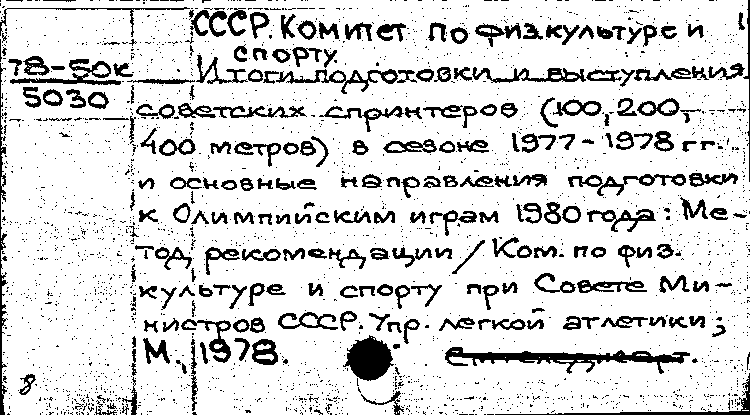 СССР. Комитет по физ.культуре и
спорту.
78-50к
5030
Итоги подготовки и выступления
советских спринтеров (100, 200,
400 метров) в сезоне 1977-1978 гг.
и основные направления подготовки
к Олимпийским играм 1980 года: Ме-
тод. рекомендации / Ком. по физ.
культуре и спорту при Совете Ми-
нистров СССР. Упр. легкой атлетики;
М., 1978.
8